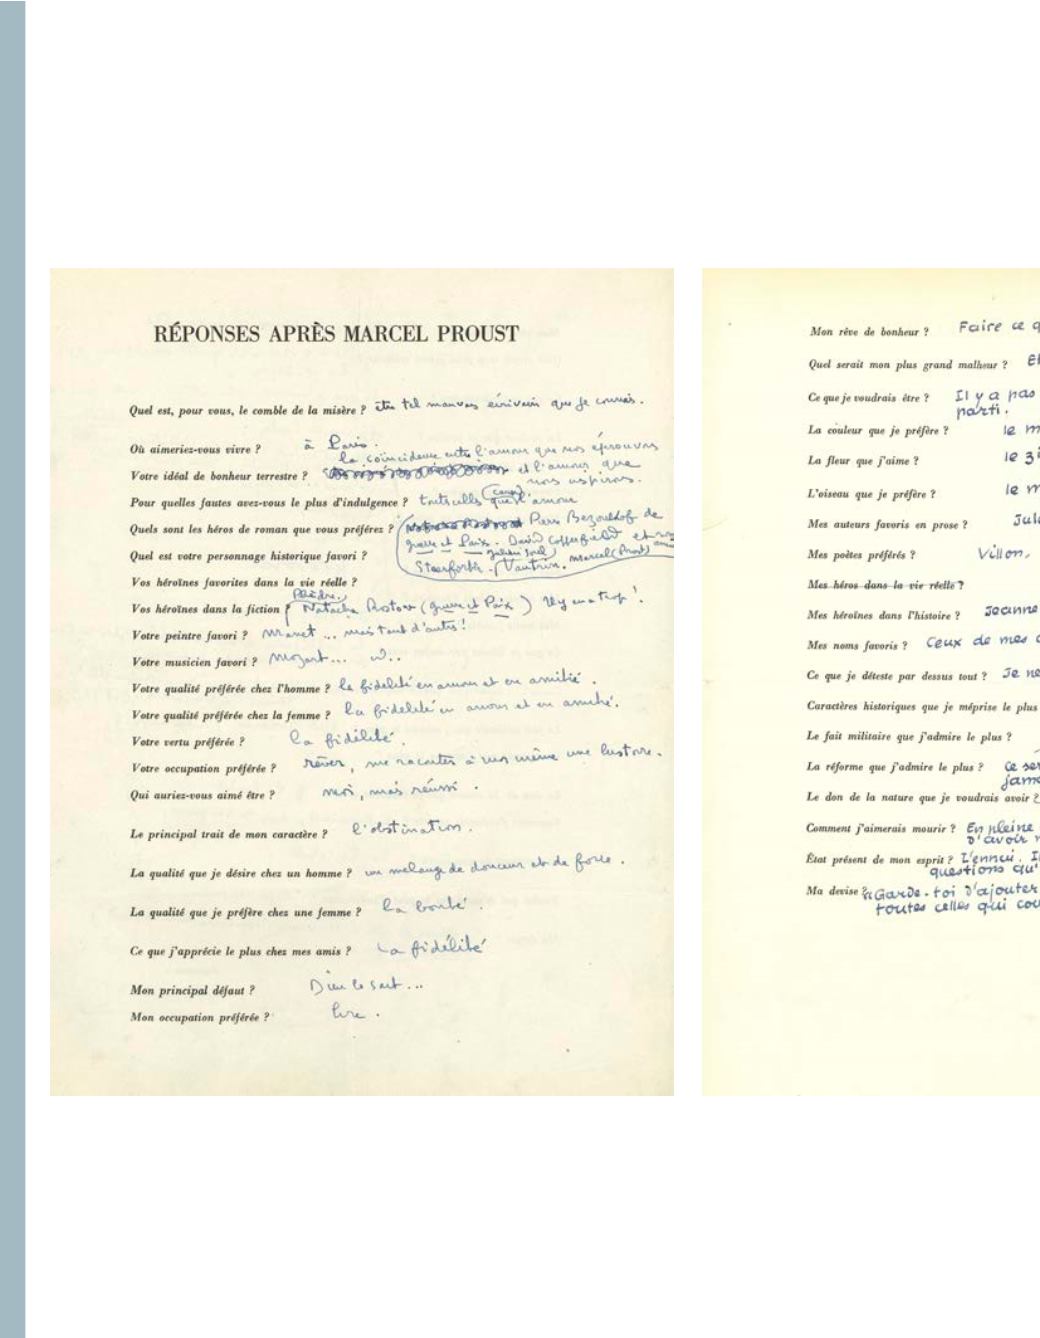 RÉPONSES APRÈS MARCEL PROUST
Quel est, pour vous, le comble de la misère ? être tel mauvais écrivain que je connais.
Où aimeriez-vous vivre ? à Paris.
la coïncidence entre l'amour que nous éprouvons
Votre idéal de bonheur terrestre ? et l'amour que
nous aspirons.
Pour quelles fautes avez-vous le plus d'indulgence ? toutes celles que l'amour
Quels sont les héros de roman que vous préférez ? Pierre Bezoukhof de
guerre et Paix. David Copperfield et son
Quel est votre personnage historique favori ?
Julien Sorel Marcel (Proust)
Steerforth. Vautrin.
Vos héroïnes favorites dans la vie réelle ?
Phèdre.
Vos héroïnes dans la fiction ? Natacha Rostow (guerre et Paix) Il y en a trop !
Votre peintre favori ? Manet ... mais tant d'autres !
Votre musicien favori ? Mozart...
Votre qualité préférée chez l'homme ? la fidélité en amour et en amitié.
Votre qualité préférée chez la femme ? la fidélité en amour et en amitié.
Votre vertu préférée ? la fidélité.
Votre occupation préférée ? rêver, me raconter à moi même une histoire.
Qui auriez-vous aimé être ? moi, mais réussi.
Le principal trait de mon caractère ? l'obstination.
La qualité que je désire chez un homme ? un mélange de douceur et de force.
La qualité que je préfère chez une femme ? la bonté.
Ce que j'apprécie le plus chez mes amis ? La fidélité
Mon principal défaut ? Dieu le sait...
Mon occupation préférée ? lire.
Mon rêve de bonheur ? Faire ce q
Quel serait mon plus grand malheur ?
Ce que je voudrais être ? Il y a pas
parti.
La couleur que je préfère ? le m
La fleur que j'aime ? le 3i
L'oiseau que je préfère ? le m
Mes auteurs favoris en prose ? Jul
Mes poètes préférés ? Villon,
Mes héros dans la vie réelle ?
Mes héroïnes dans l'histoire ? Jeanne
Mes noms favoris ? Ceux de mes
Ce que je déteste par dessus tout ? Je ne
Caractères historiques que je méprise le plus
Le fait militaire que j'admire le plus ?
La réforme que j'admire le plus ? Ce ser
jama
Le don de la nature que je voudrais avoir ?
Comment j'aimerais mourir ? En pleine
d'avoir
État présent de mon esprit ? L'ennui.
questions qu'
Ma devise ? « Garde-toi d'ajouter
toutes celles qui cou